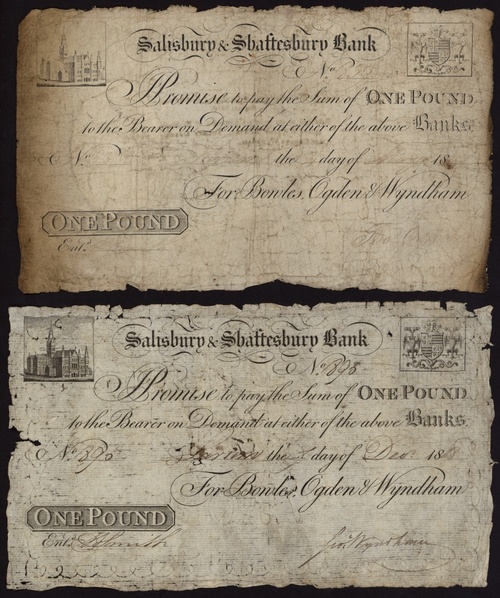 Salisbury & Shaftesbury Bank
No
I Promise to pay the Sum of ONE POUND
to the Bearer on Demand at either of the above Banks
No the day of 18
For Bowles, Ogden & Wyndham
ONE POUND
Entd.
Salisbury & Shaftesbury Bank
No 898
I Promise to pay the Sum of ONE POUND
to the Bearer on Demand at either of the above Banks
No 898 the day of Decr 18
For Bowles, Ogden & Wyndham
ONE POUND
Entd. Smith
Wyndham